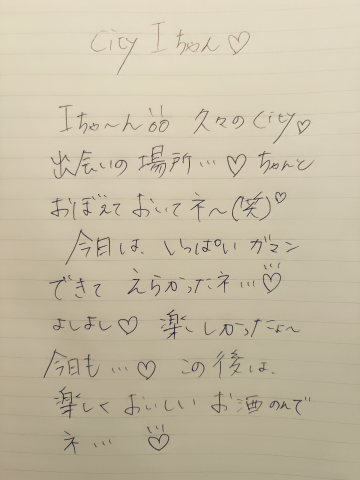 City Iちゃん♡
Iちゃ〜ん!! 久々のCity♡
出会いの場所…♡ ちゃんと
おぼえておいてネ〜(笑)♡
今日は、いっぱいガマン
できて えらかったネ…♡
よしよし♡ 楽しかったよ〜
今日も…♡ この後は、
楽しくおいしいお酒のんで
ネ… ♡